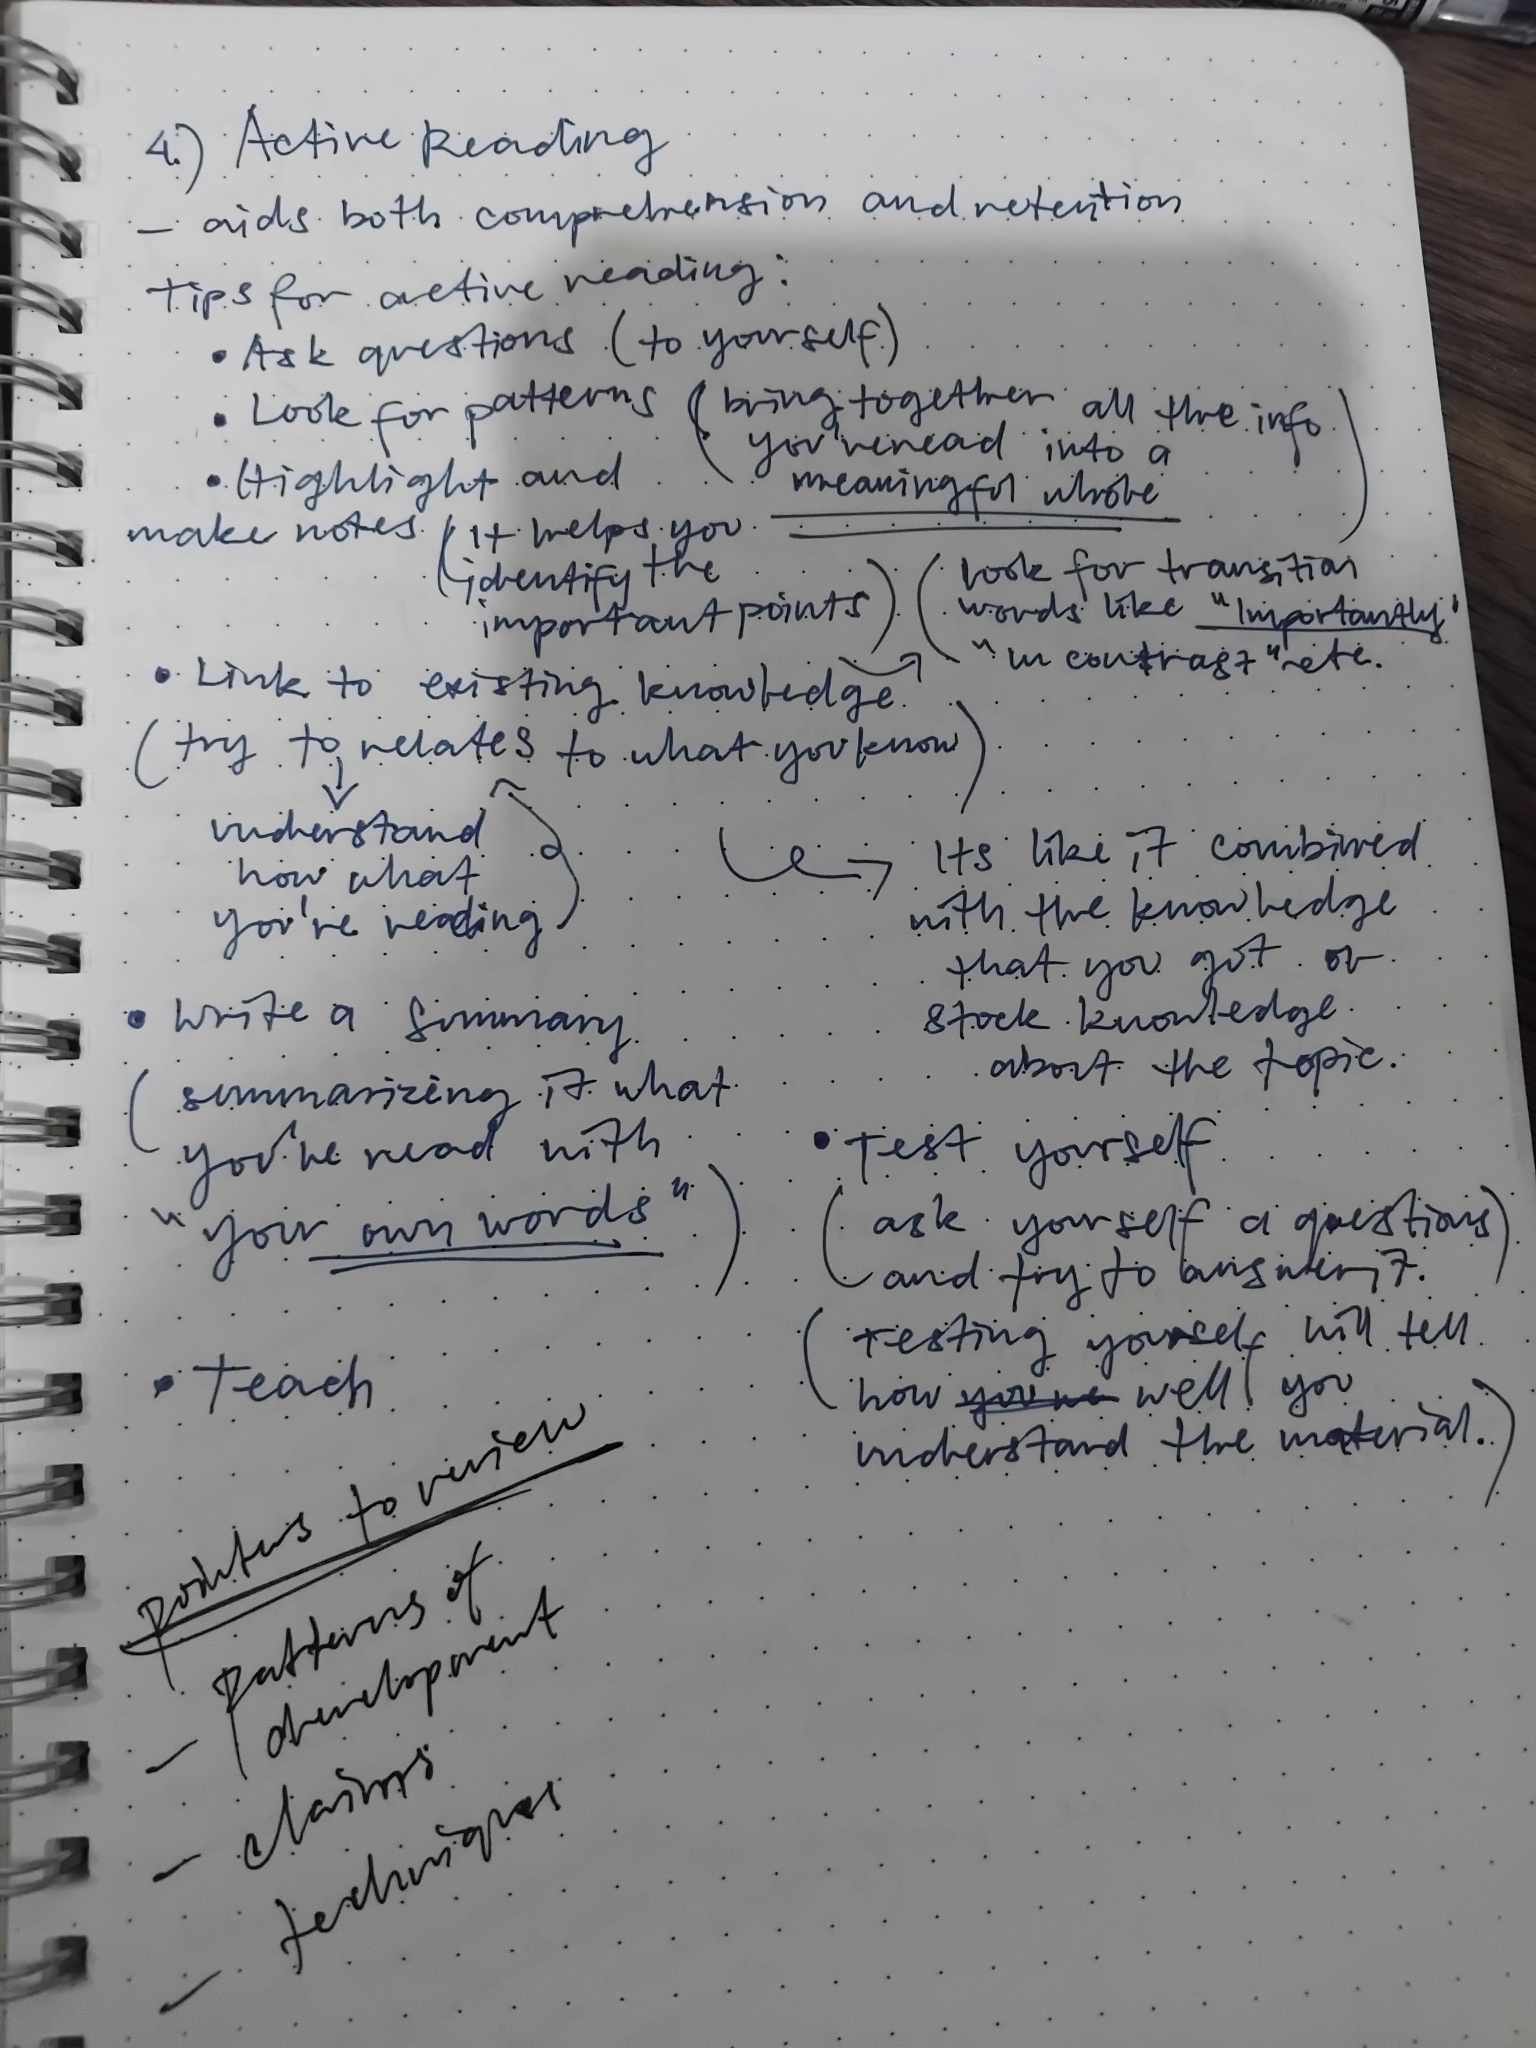 4.) Active Reading
- aids both comprehension and retention
Tips for active reading:
• Ask questions (to yourself)
• Look for patterns (bring together all the info
you're read into a
meaningful whole
• Highlight and
make notes (it helps you
identify the
important points)
(look for transition
words like "Importantly"
"in contrast" etc.
• Link to existing knowledge
(try to relates to what you know)
understand
how what
you're reading
Its like it combined
with the knowledge
that you got or
stock knowledge
about the topic.
• Write a summary
(summarizing it what
you're read with
"your own words")
• Test yourself
(ask yourself a questions)
and try to answer it.
(Testing yourself will tell
how well you
understand the material.)
• Teach
pointers to review
- patterns of
development
- claims
- techniques